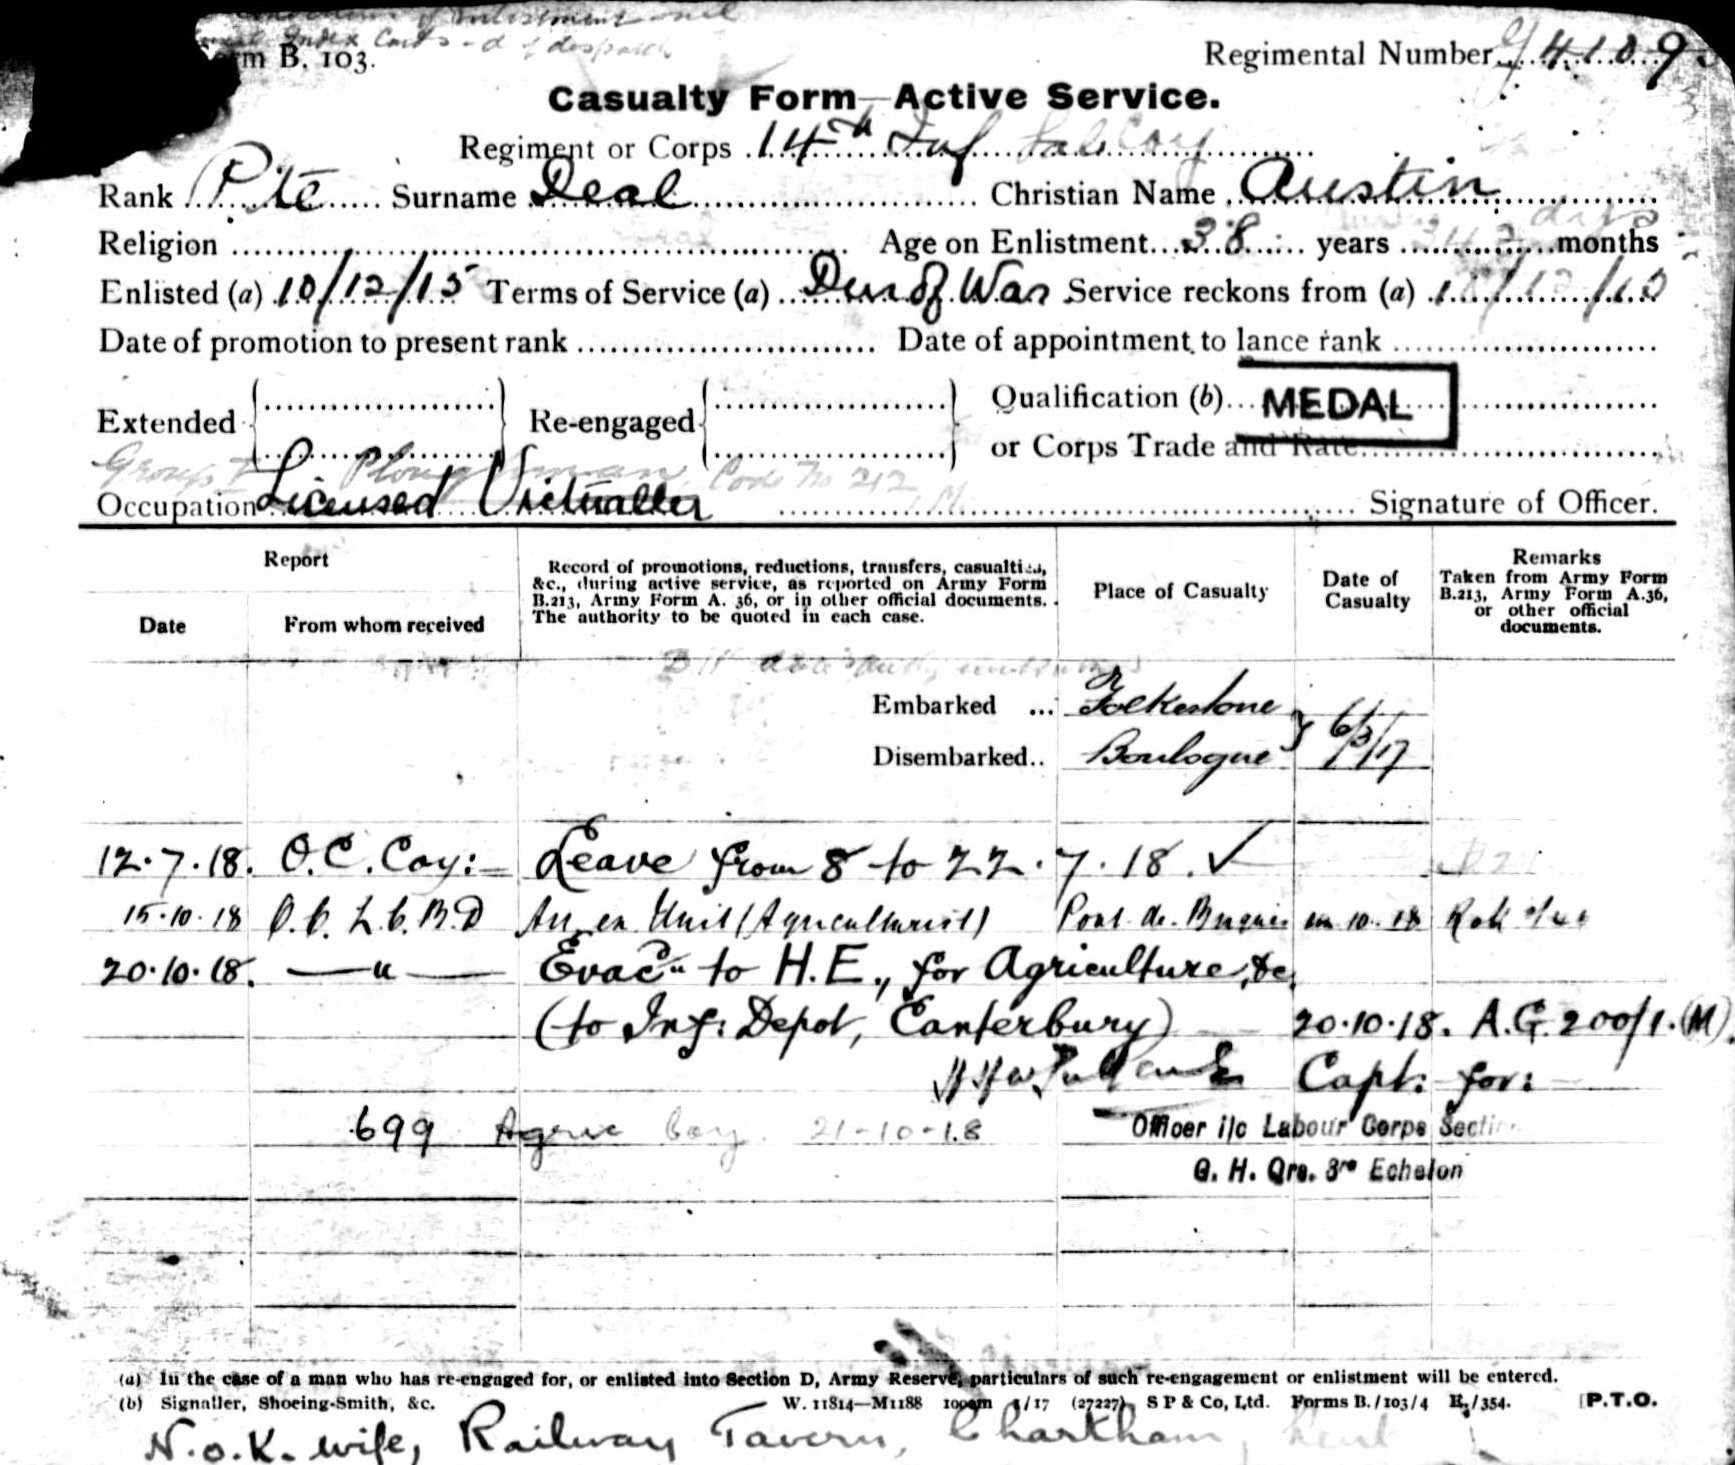 of enlistment and
Index Cards - d of despatch
rm B. 103.
Regimental Number G/ 4109
Casualty Form—Active Service.
Regiment or Corps 14th Inf Lab Coy
Rank Pte Surname Deal Christian Name Austin
Religion Age on Enlistment 38 years 342 days months
Enlisted (a) 10/12/15 Terms of Service (a) Dur of War Service reckons from (a) 10/12/15
Date of promotion to present rank Date of appointment to lance rank
Extended Re-engaged Qualification (b)
MEDAL
or Corps Trade and Rate
Group Ploughman Code No 212
Occupation Licensed Victualler Signature of Officer.
Report
Date
From whom received
Record of promotions, reductions, transfers, casualties,
&c., during active service, as reported on Army Form
B.213, Army Form A. 36, or in other official documents.
The authority to be quoted in each case.
Place of Casualty
Date of
Casualty
Remarks
Taken from Army Form
B.213, Army Form A.36,
or other official
documents.
Embarked ... Folkestone
Disembarked.. Boulogne } 6/3/17
12.7.18. O.C. Coy:– Leave from 8 to 22.7.18. ✓
15.10.18 O.C. L.C.B.D Arr. en Unit (Agriculturist) Pont de Briques 10.18
20.10.18. —"— Evacn to H.E., for Agriculture, &c,
(to Inf: Depot, Canterbury) 20.10.18. A.G. 200/1. (M).
Capt: for:
699 Agric Coy. 21-10-18
Officer i/c Labour Corps Section
G. H. Qrs. 3rd Echelon
(a) In the case of a man who has re-engaged for, or enlisted into Section D, Army Reserve, particulars of such re-engagement or enlistment will be entered.
(b) Signaller, Shoeing-Smith, &c. W. 11814—M1188 1000m 1/17 (27227) S P & Co, Ltd. Forms B./103/4 E./354. [P.T.O.
N.o.K. wife, Railway Tavern, Chartham, Kent